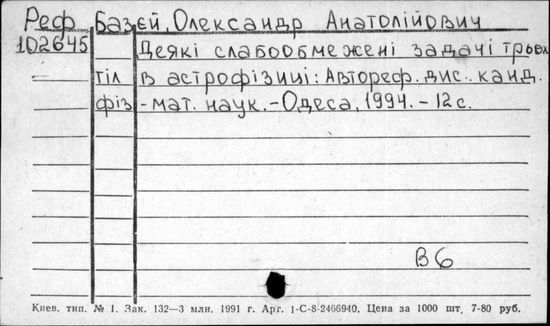 Реф Базєй, Олександр Анатолійович
102645 Деякі слабообмежені задачі трьох
тіл в астрофізиці: Автореф. дис. канд.
фіз-мат. наук. - Одеса, 1994. - 12 с.
В6
Києв. тип. № 1. Зак. 132—3 млн. 1991 г. Арт. 1-С-8-2466940. Цена за 1000 шт. 7-80 руб.